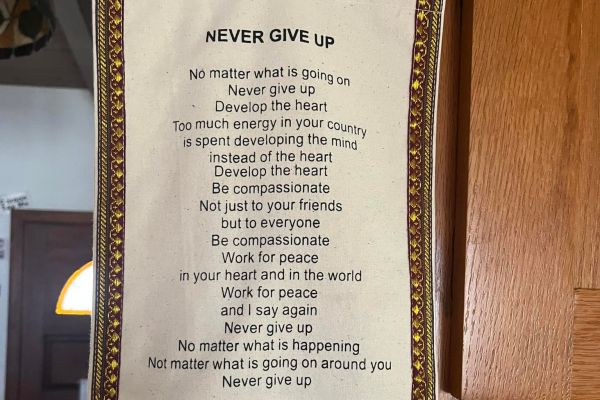 NEVER GIVE UP
No matter what is going on
Never give up
Develop the heart
Too much energy in your country
is spent developing the mind
instead of the heart
Develop the heart
Be compassionate
Not just to your friends
but to everyone
Be compassionate
Work for peace
in your heart and in the world
Work for peace
and I say again
Never give up
No matter what is happening
Not matter what is going on around you
Never give up